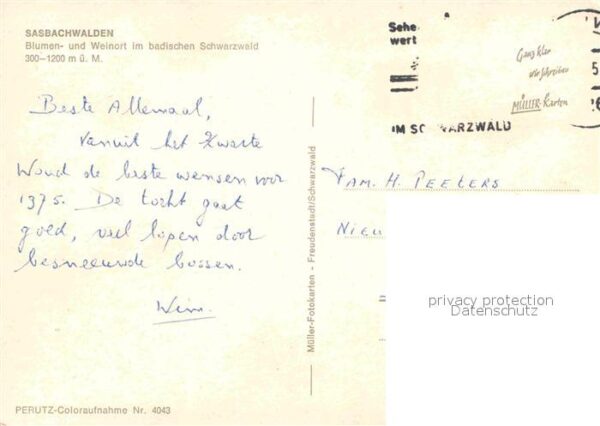 SASBACHWALDEN
Blumen- und Weinort im badischen Schwarzwald
300—1200 m ü. M.
Beste Allemaal,
vanuit het Zwarte
Woud de beste wensen voor
1375. De tocht gaat
goed, veel lopen door
besneeuwde bossen.
Wim.
PERUTZ-Coloraufnahme Nr. 4043
Müller-Fotokarten - Freudenstadt/Schwarzwald
Sehe
wert
IM SC WARZWALD
Ganz klar
wir schreiben
MÜLLER-Karten
FAM. H. PEETERS
NIEU
privacy protection
Datenschutz